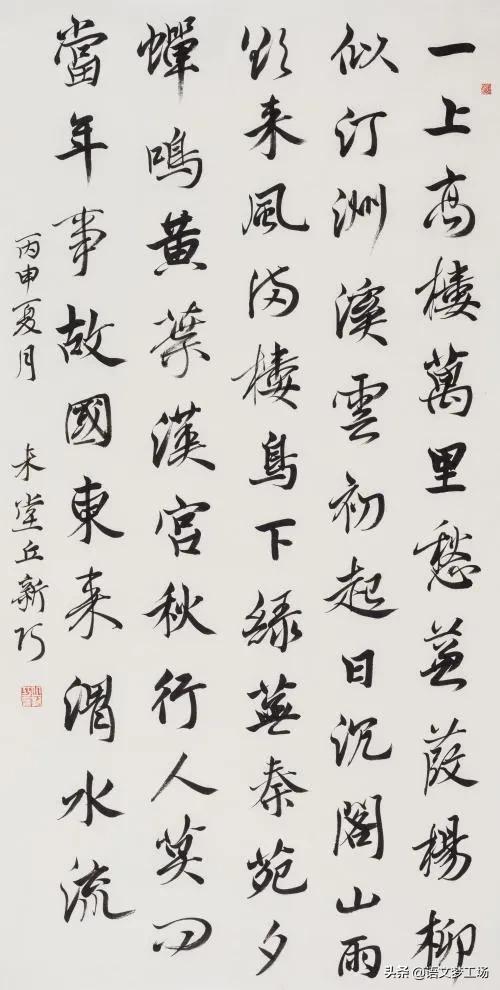 一上高樓萬里愁蒹葭楊柳
似汀洲溪雲初起日沉閣山雨
欲来風满樓鳥下緑蕪秦苑夕
蟬鳴黄葉漢宮秋行人莫问
當年事故國東来渭水流
丙申夏月 堂丘新巧
头条 @语文梦工场